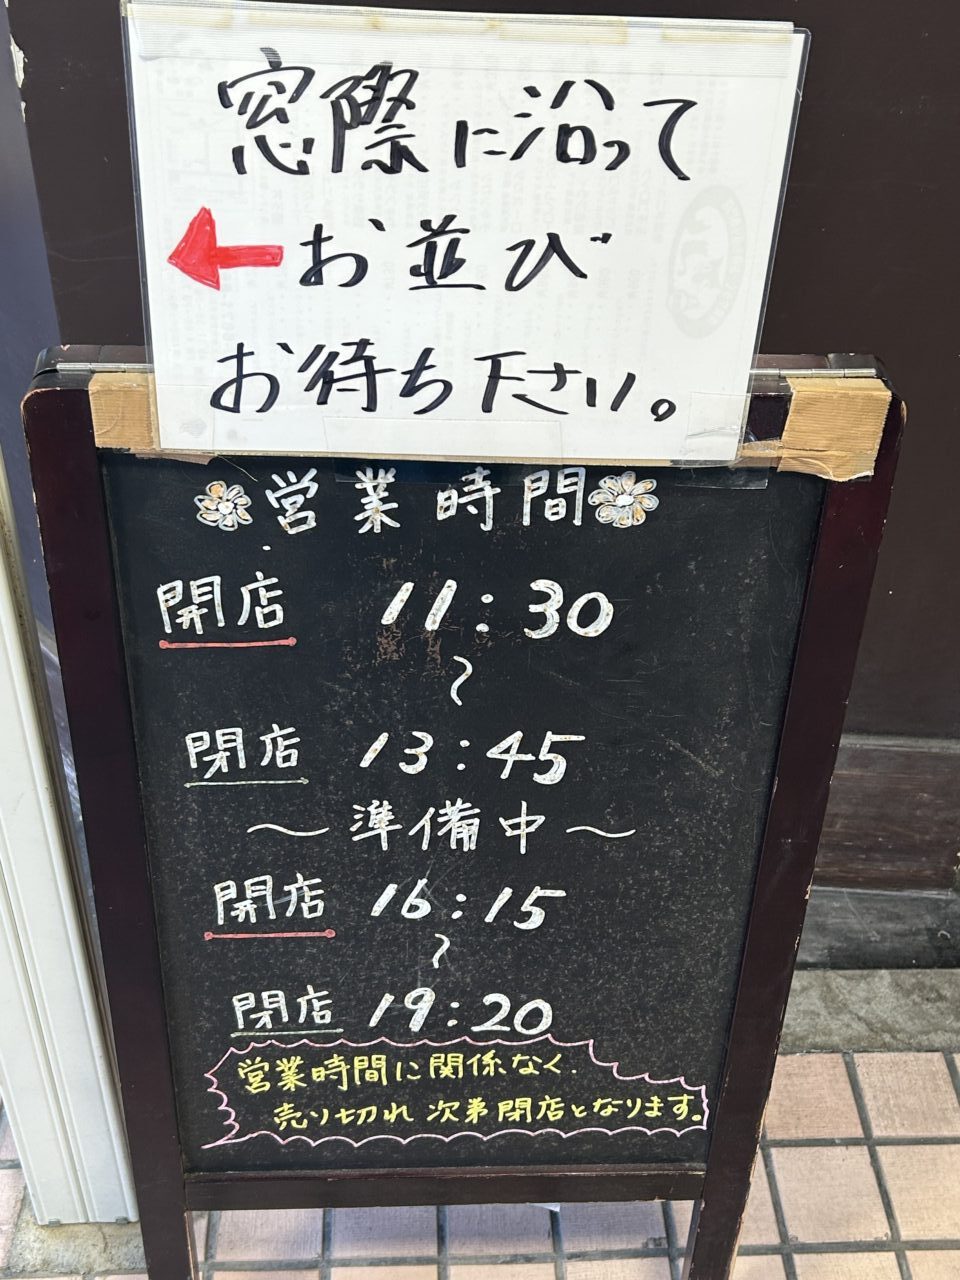 窓際に沿って
お並び
お待ち下さい。
営業時間
開店 11:30
〜
閉店 13:45
〜準備中〜
開店 16:15
〜
閉店 19:20
営業時間に関係なく.
売り切れ次第閉店となります。